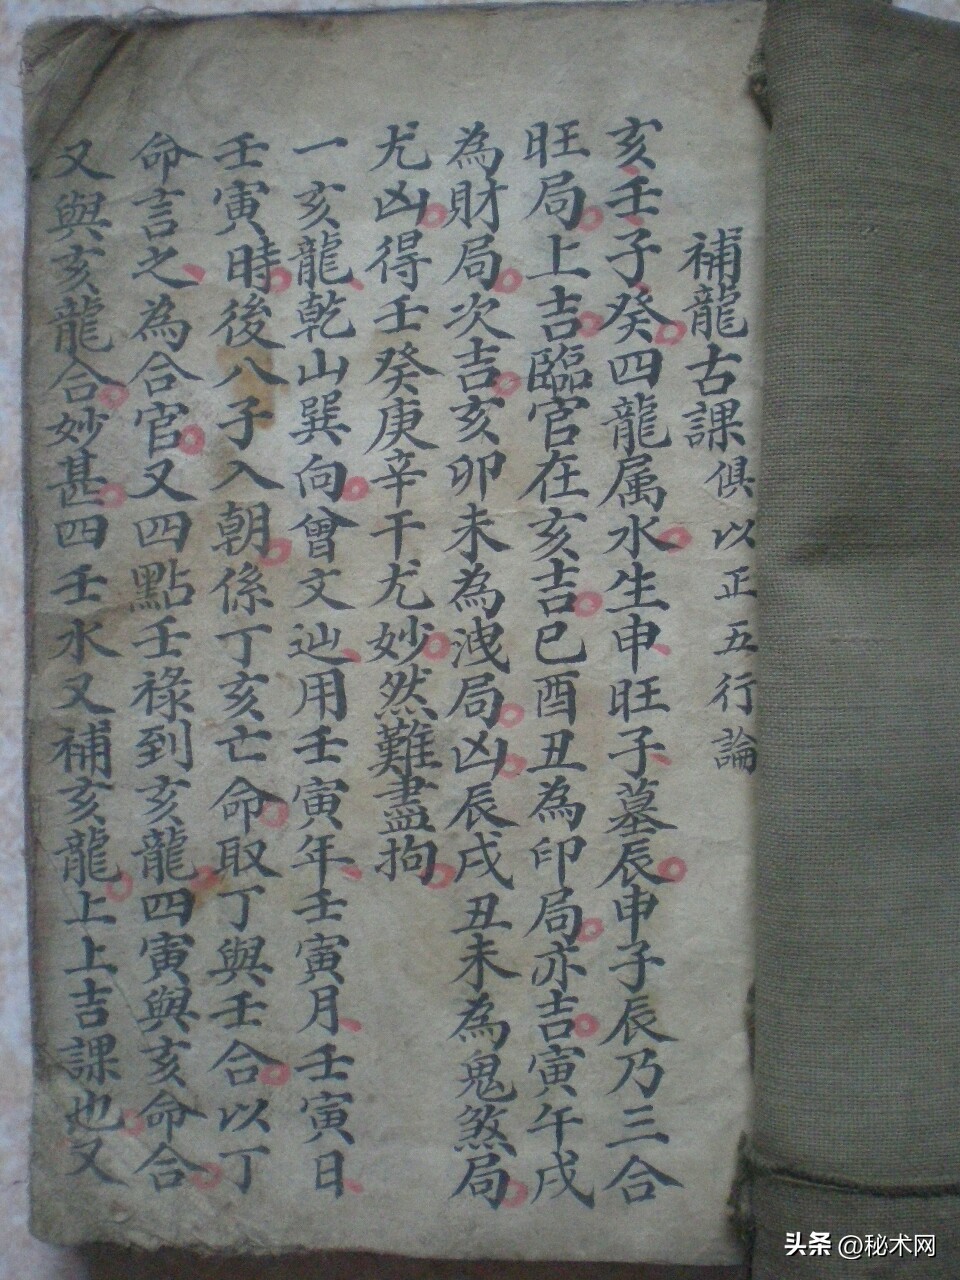 補龍古課俱以正五行論
亥壬子癸四龍属水生申旺子墓辰申子辰乃三合
旺局上吉臨官在亥吉巳酉丑為印局亦吉寅午戌
為財局次吉亥卯未為洩局凶辰戌丑未為鬼煞局
尤凶得壬癸庚辛干尤妙然難盡拘
一亥龍乾山巽向曾文辿用壬寅年壬寅月壬寅日
壬寅時後八子入朝係丁亥亡命取丁與壬合以丁
命言之為合官又四點壬祿到亥龍四寅與亥命合
又與亥龍合妙甚四壬水又補亥龍上上吉課也又
头条 @秘术网